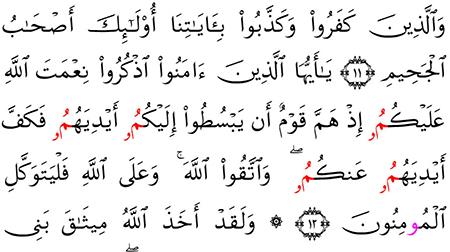 وَٱلَّذِينَ كَفَرُوا۟ وَكَذَّبُوا۟ بِـَٔايَٰتِنَآ أُو۟لَٰٓئِكَ أَصْحَٰبُ
ٱلْجَحِيمِ ١١ يَٰٓأَيُّهَا ٱلَّذِينَ ءَامَنُوا۟ ٱذْكُرُوا۟ نِعْمَتَ ٱللَّهِ
عَلَيْكُمُۥ إِذْ هَمَّ قَوْمٌ أَن يَبْسُطُوٓا۟ إِلَيْكُمُۥ أَيْدِيَهُمُۥ فَكَفَّ
أَيْدِيَهُمُۥ عَنكُمُۥ ۖ وَٱتَّقُوا۟ ٱللَّهَ ۚ وَعَلَى ٱللَّهِ فَلْيَتَوَكَّلِ
ٱلْمُومِنُونَ ١٢ ۞ وَلَقَدْ أَخَذَ ٱللَّهُ مِيثَٰقَ بَنِىٓ